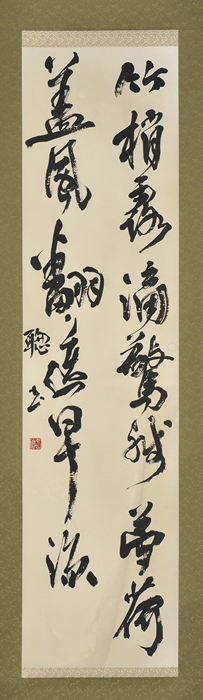 竹梢露滴驚残夢荷
蓋風翻送早涼
聰書